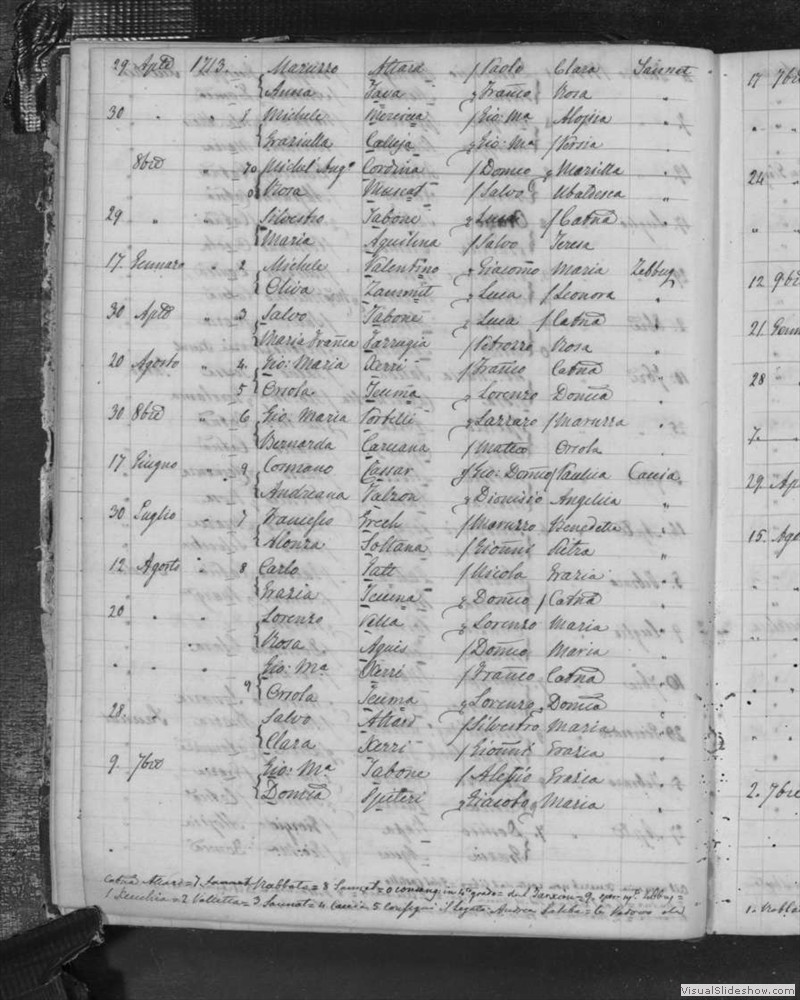 29 Aprᵉ 1713. Maruzzo Attard / Paolo Clara Sannat
Anna Fava q Franco Rosa "
30 " " 1 Michele Mercieca / Gio: Mᵃ Aloisia "
Graziulla Calleja q Gio: Mᵃ / Persia "
8bre 70 Michel' Ang° Cordina / Domco q Mariella "
0 Rosa Muscat / Salvo Ubaldesca "
29 " " Silvestro Tabone q Luca / Catña
Maria Aquilina / Salvo Teresa
17 Gennaro " 2 Michele Valentino q Giacomo Maria Zebbug
Oliva Zammit q Luca / Leonora "
30 Aprᵉ " 3 Salvo Tabone q Luca / Catña
Maria Franca Farrugia / Petruzzo Rosa "
20 Agosto " 4 Gio: Maria Xerri / Franco Catña
5 Orsola Teuma q Lorenzo Domca "
30 8bre " 6 Gio: Maria Portelli q Lazzaro / Maruzza "
Bernarda Caruana / Matteo Orsola "
17 Giugno " 9 Cosmano Cassar q Gio: Domco / Paulica Caccia
Andreana Falzon q Dionisio Angelica "
30 Luglio " 7 Francesco Grech / Maruzzo Benedetta "
" Alonza Soltana / Gioanni Pietra "
12 Agosto " 8 Carlo Tatt / Nicola Grazia "
Grazia Teuma q Domco / Catña "
20 " " Lorenzo Vella q Lorenzo Maria
" Rosa Agius / Domco Maria "
" " " Gio: Mᵃ Xerri / Franco Catña
9 Orsola Teuma q Lorenzo Domca "
28 Salvo Attard / Silvestro Maria
Clara Xerri / Gioanni Grazia "
9. 7bre Gio: Mᵃ Tabone / Alessio Grazia "
Domca Spiteri q Giacobo Maria "
Catña Attard = 7 Sannat / Rabbato = 8 Sannat = 0 consang in 4° grado = del Tarxien = 9
= 2 Valletta = 3 Sannat = 4 Caccia 5 Andrea = 6
17 7bre
24
12 9bre
21 Genn
28 "
7
29 Ap
15 Ago
2. 7bre
1. Rabba
VisualSlideshow.com